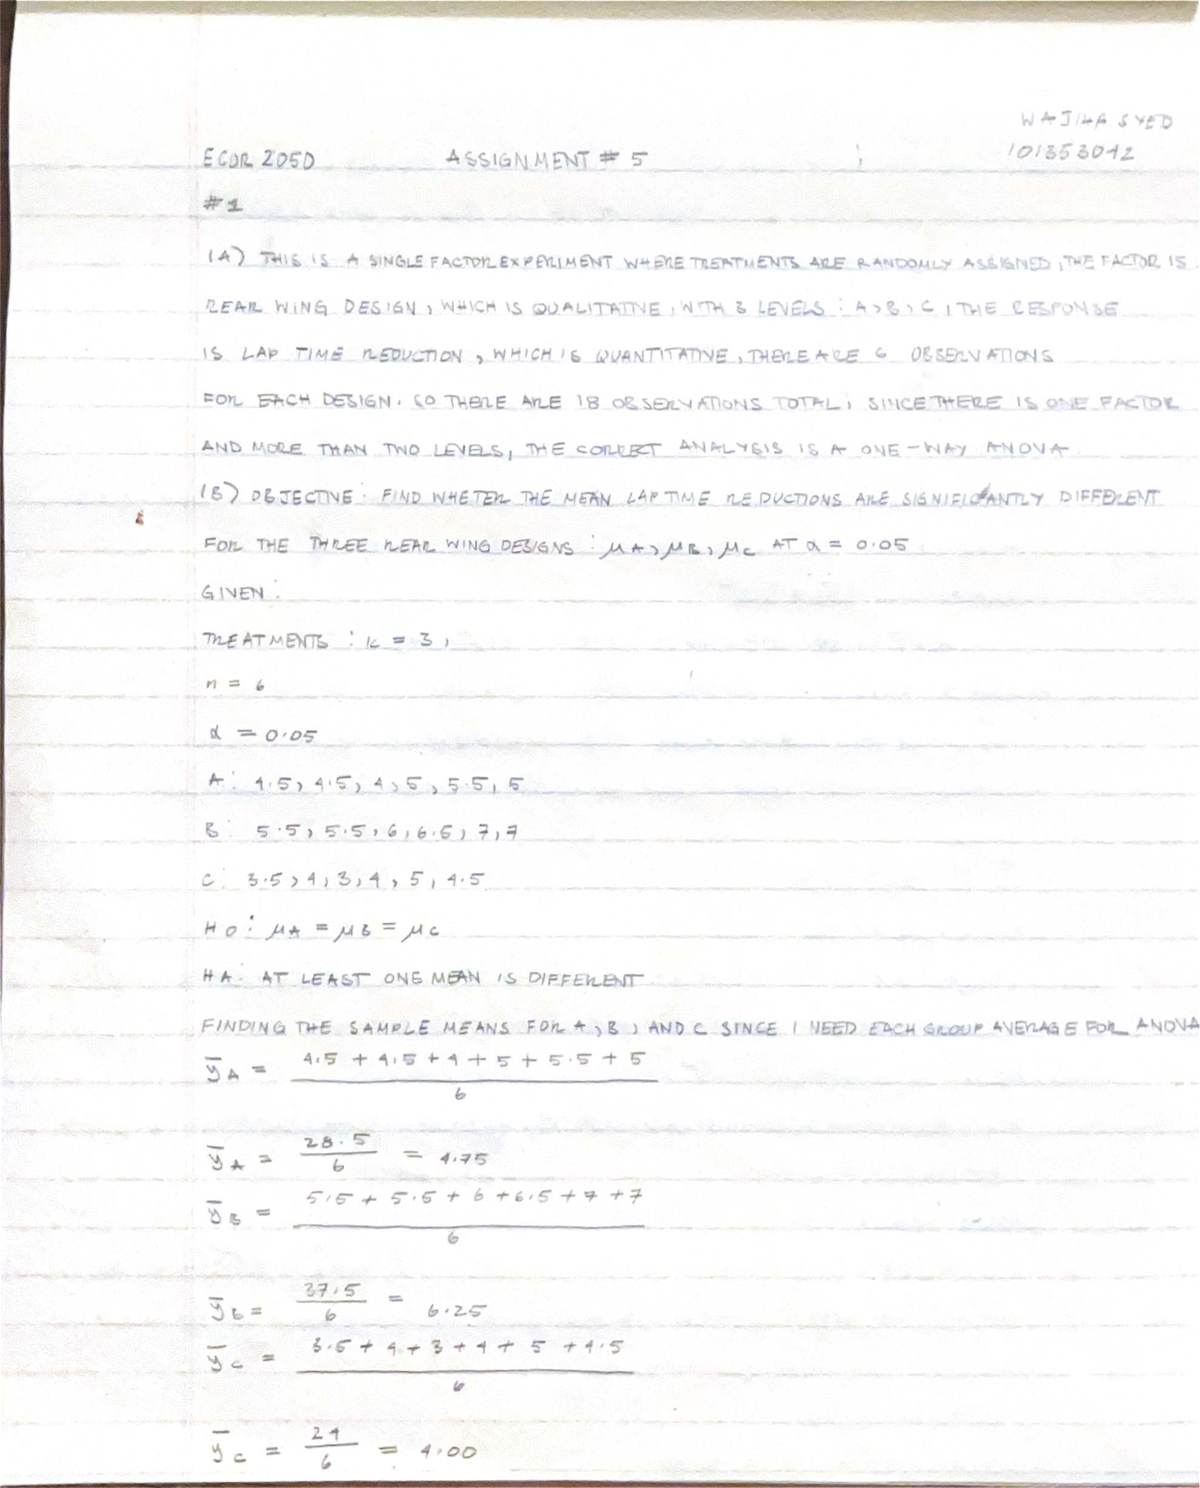 WAJIHA SYED
ECOR 2050 ASSIGNMENT # 5 101353042
#1
(A) THIS IS A SINGLE FACTOR EXPERIMENT WHERE TREATMENTS ARE RANDOMLY ASSIGNED, THE FACTOR IS
REAR WING DESIGN, WHICH IS QUALITATIVE, WITH 3 LEVELS: A, B, C, THE RESPONSE
IS LAP TIME REDUCTION, WHICH IS QUANTITATIVE, THERE ARE 6 OBSERVATIONS
FOR EACH DESIGN. SO THERE ARE 18 OBSERVATIONS TOTAL, SINCE THERE IS ONE FACTOR
AND MORE THAN TWO LEVELS, THE CORRECT ANALYSIS IS A ONE-WAY ANOVA
(B) OBJECTIVE: FIND WHETER THE MEAN LAP TIME REDUCTIONS ARE SIGNIFICANTLY DIFFERENT
FOR THE THREE REAR WING DESIGNS: μA, μB, μC AT α = 0.05
GIVEN:
TREATMENTS: K = 3,
n = 6
α = 0.05
A: 4.5, 4.5, 4, 5, 5.5, 5
B: 5.5, 5.5, 6, 6.5, 7, 7
C: 3.5, 4, 3, 4, 5, 4.5
H0: μA = μB = μC
HA: AT LEAST ONE MEAN IS DIFFERENT
FINDING THE SAMPLE MEANS FOR A, B, AND C SINCE I NEED EACH GROUP AVERAGE FOR ANOVA
ȳA = 4.5 + 4.5 + 4 + 5 + 5.5 + 5 / 6
ȳA = 28.5 / 6 = 4.75
ȳB = 5.5 + 5.5 + 6 + 6.5 + 7 + 7 / 6
ȳB = 37.5 / 6 = 6.25
ȳC = 3.5 + 4 + 3 + 4 + 5 + 4.5 / 6
ȳC = 24 / 6 = 4.00